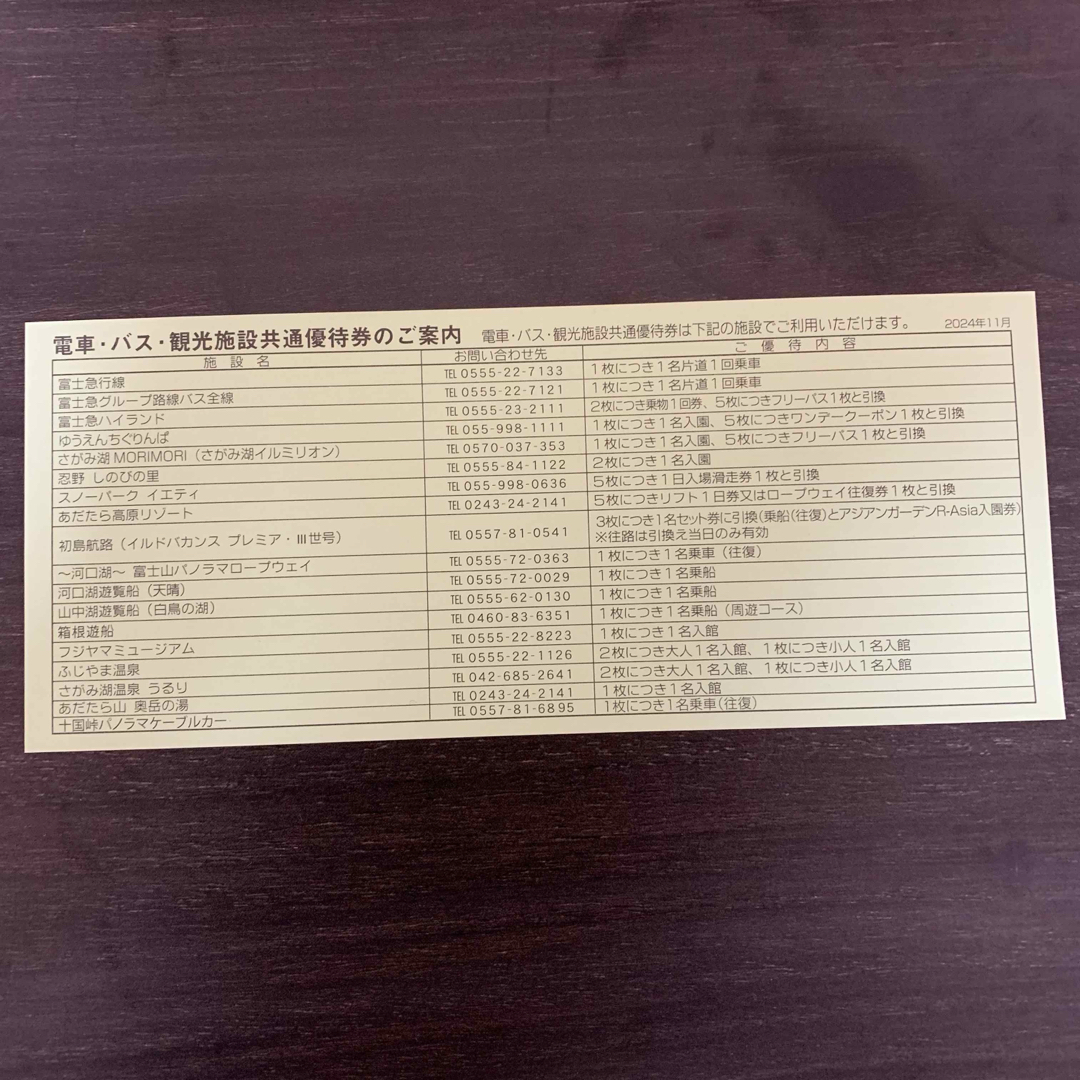 電車・バス・観光施設共通優待券のご案内 電車・バス・観光施設共通優待券は下記の施設でご利用いただけます。 2024年11月
施設名 お問い合わせ先 ご優待内容
富士急行線 TEL 0555-22-7133 1枚につき1名片道1回乗車
富士急グループ路線バス全線 TEL 0555-22-7121 1枚につき1名片道1回乗車
富士急ハイランド TEL 0555-23-2111 2枚につき乗物1回券、5枚につきフリーパス1枚と引換
ゆうえんちぐりんぱ TEL 055-998-1111 1枚につき1名入園、5枚につきワンデークーポン1枚と引換
さがみ湖MORIMORI（さがみ湖イルミリオン） TEL 0570-037-353 1枚につき1名入園、5枚につきフリーパス1枚と引換
忍野 しのびの里 TEL 0555-84-1122 2枚につき1名入園
スノーパーク イエティ TEL 055-998-0636 5枚につき1日入場滑走券1枚と引換
あだたら高原リゾート TEL 0243-24-2141 5枚につきリフト1日券又はロープウェイ往復券1枚と引換
初島航路（イルドバカンス プレミア・Ⅲ世号） TEL 0557-81-0541 3枚につき1名セット券に引換(乗船(往復)とアジアンガーデンR-Asia入園券)
※往路は引換え当日のみ有効
～河口湖～ 富士山パノラマロープウェイ TEL 0555-72-0363 1枚につき1名乗車（往復）
河口湖遊覧船（天晴） TEL 0555-72-0029 1枚につき1名乗船
山中湖遊覧船（白鳥の湖） TEL 0555-62-0130 1枚につき1名乗船
箱根遊船 TEL 0460-83-6351 1枚につき1名乗船（周遊コース）
フジヤマミュージアム TEL 0555-22-8223 1枚につき1名入館
ふじやま温泉 TEL 0555-22-1126 2枚につき大人1名入館、1枚につき小人1名入館
さがみ湖温泉 うるり TEL 042-685-2641 2枚につき大人1名入館、1枚につき小人1名入館
あだたら山 奥岳の湯 TEL 0243-24-2141 1枚につき1名入館
十国峠パノラマケーブルカー TEL 0557-81-6895 1枚につき1名乗車(往復)